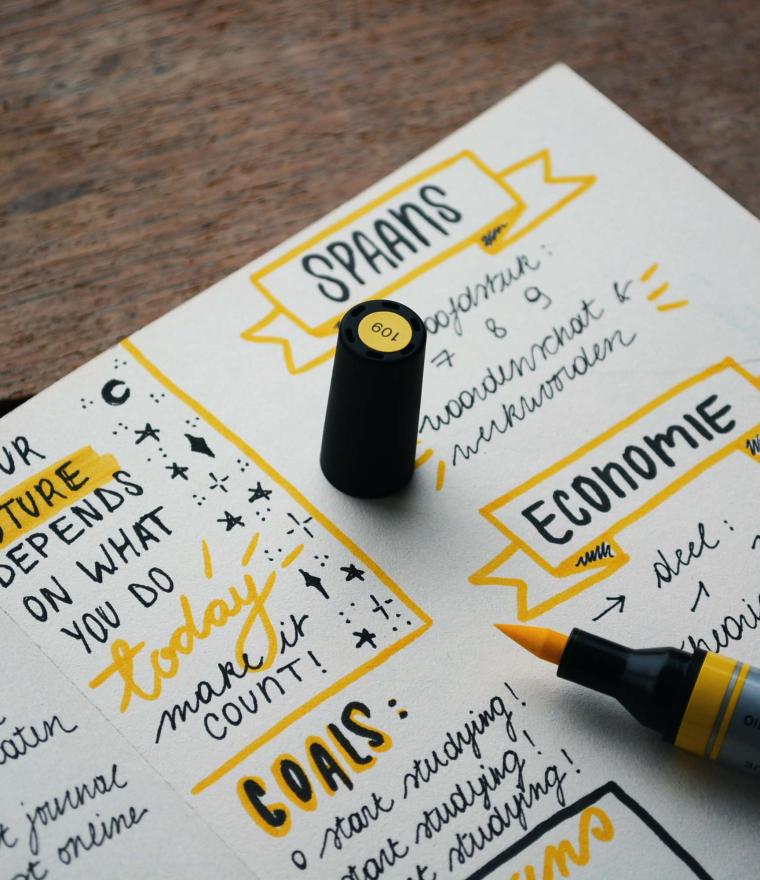 SPAANS
oofdstuk:
7 8 9
woordenschat &
werkwoorden
109
ECONOMIE
deel:
UR
TURE
DEPENDS
ON WHAT
YOU DO
today
make it
COUNT!
GOALS:
o start studying!
start studying!
t studying!
aten
t journal
t online